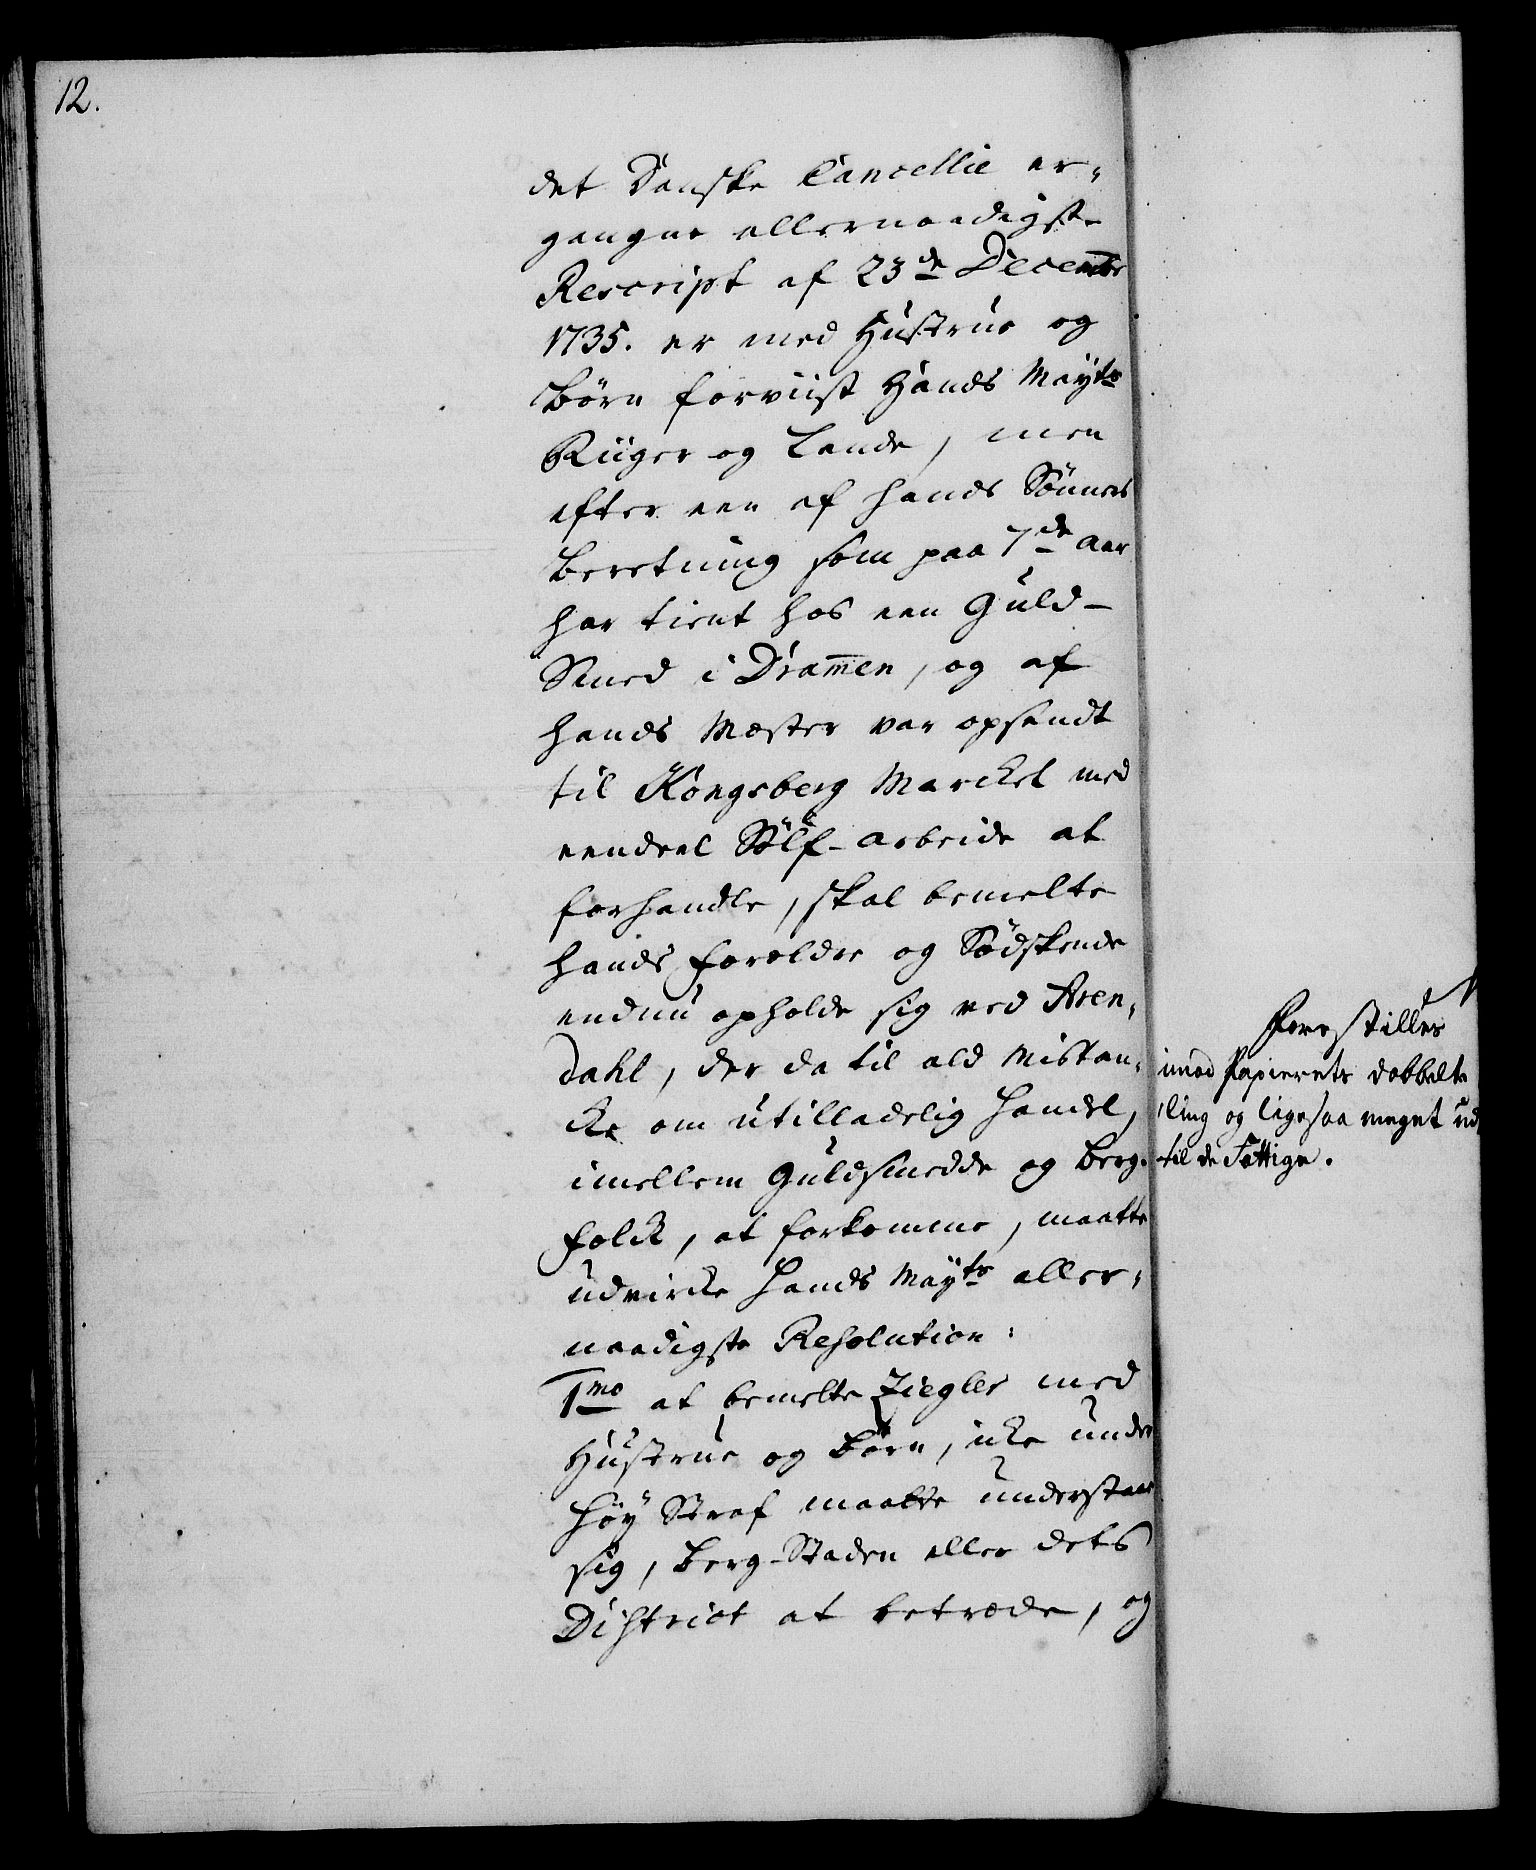 12.
det Danske Cancellie er,
gangne allernaadigste
Rescript af 23de Decembr
1735. er med Hustrue og
Børn forviist Hands Mayts
Riiger og Lande, men
efter een af hands Sønners
beretning som paa 7de Aar
har tient hos een Guld-
Smed i Dramen, og af
hands Mester var opsendt
til Kongsberg Marcket med
eendeel Sølf-arbeide at
forhandle, skal bemelte
hands forældre og Sødskende
endnu opholde sig ved Aren,
dahl, der da til ald Mistan,
cke om utilladelig handel,
imellem Guldsmedde og berg-
folck, at forkomme, maatte
udvircke Hands Mayts aller,
naadigste Resolution:
1mo at bemelte Ziegler med
Hustrue og Børn, icke under
høy Straf maatte understaae
sig, Berg-Staden eller dets
District at betræde, og
Forestilles
imod Papierets dobbelte
ling og ligesaa meget ud
til de Fattige.